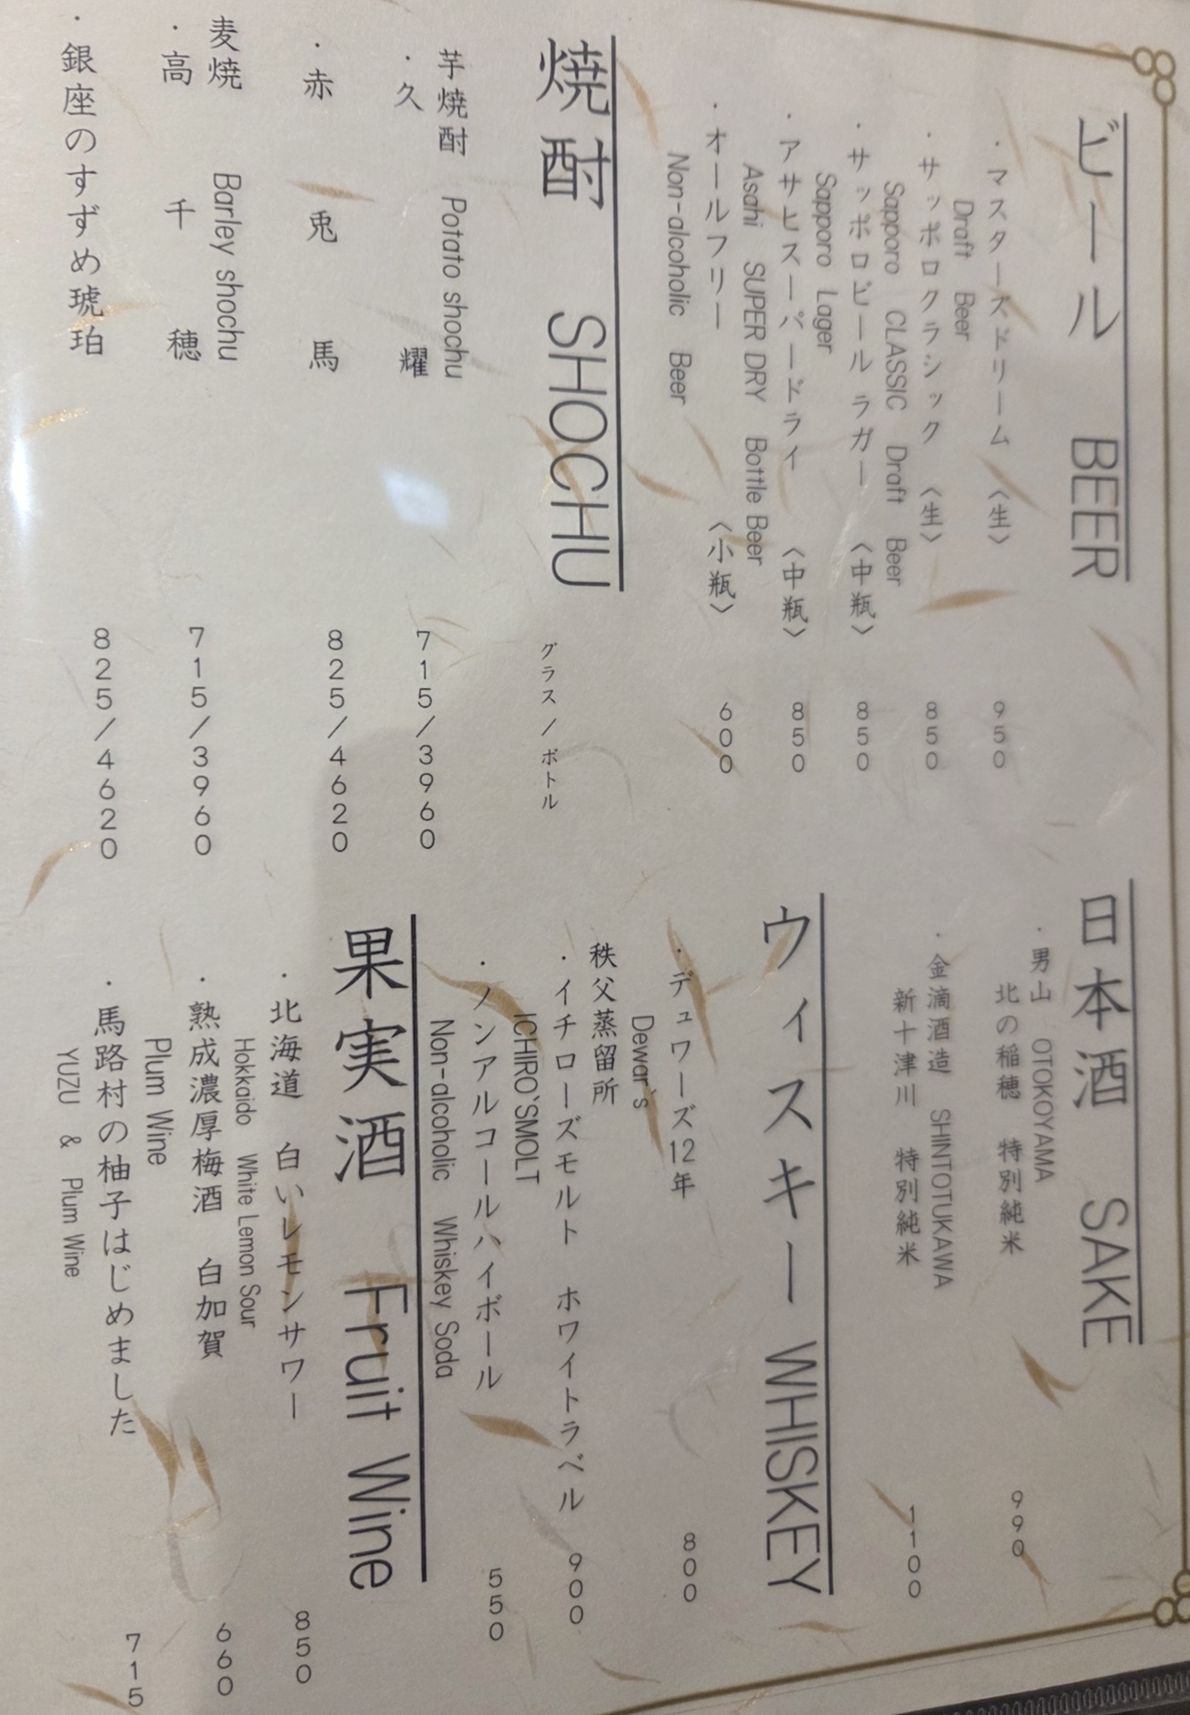 ビール BEER
・マスターズドリーム 〈生〉 950
Draft Beer
・サッポロクラシック 〈生〉 850
Sapporo CLASSIC Draft Beer
・サッポロビール ラガー 〈中瓶〉 850
Sapporo Lager
・アサヒスーパードライ 〈中瓶〉 850
Asahi SUPER DRY Bottle Beer
・オールフリー 〈小瓶〉 600
Non-alcoholic Beer
焼酎 SHOCHU
グラス/ボトル
芋焼酎 Potato shochu
・久耀 715/3960
・赤兎馬 825/4620
麦焼 Barley shochu
・高千穂 715/3960
・銀座のすずめ琥珀 825/4620
日本酒 SAKE
・男山 OTOKOYAMA
北の稲穂 特別純米 990
・金滴酒造 SHINTOTUKAWA
新十津川 特別純米 1100
ウィスキー WHISKEY
・デュワーズ12年 800
Dewar's
秩父蒸留所
・イチローズモルト ホワイトラベル 900
ICHIRO`SMOLT
・ノンアルコールハイボール 550
Non-alcoholic Whiskey Soda
果実酒 Fruit Wine
・北海道 白いレモンサワー 850
Hokkaido White Lemon Sour
・熟成濃厚梅酒 白加賀 660
Plum Wine
・馬路村の柚子はじめました 715
YUZU & Plum Wine